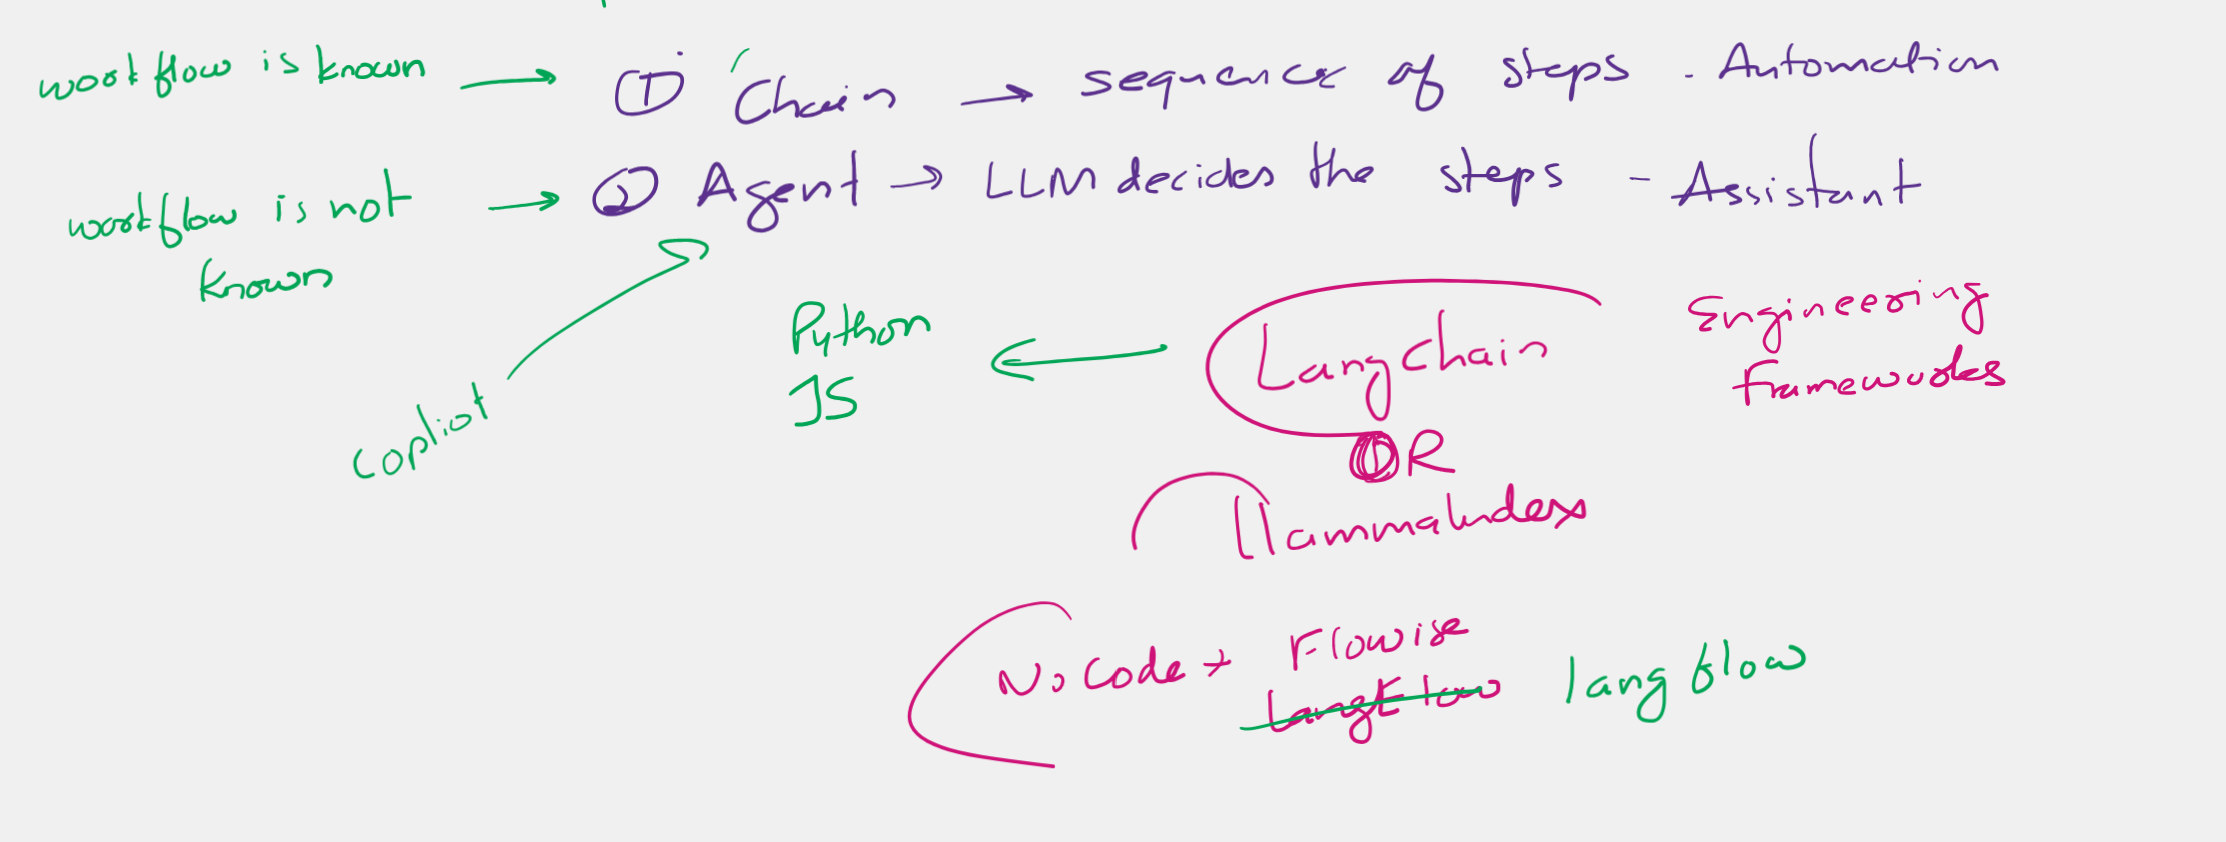 workflow is known → ① Chain → sequence of steps - Automation
workflow is not known → ② Agent → LLM decides the steps - Assistant
copliot
Python
JS
Langchain
Engineering
frameworks
OR
LlammaIndex
No Code → Flowise
LangFlow
langflow